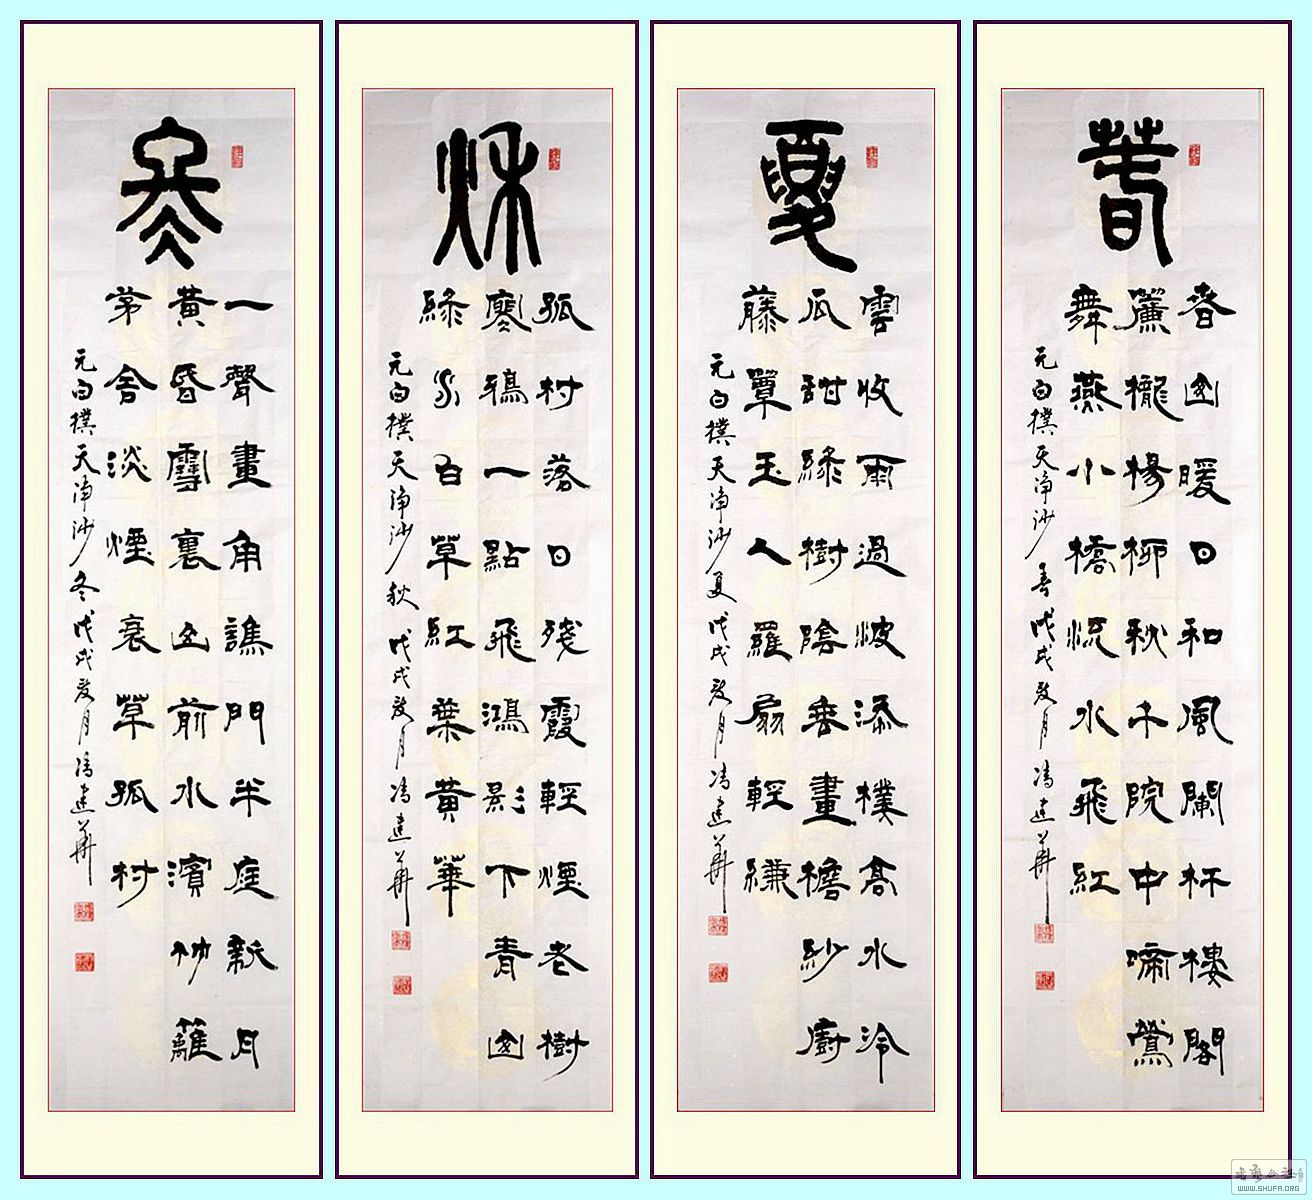 春
春山暖日和風闌杆樓閣
簾櫳楊柳秋千院中啼鶯
舞燕小橋流水飛紅
元白樸天淨沙春戊戌月馮建華
夏
雲收雨過波添樓高水冷
瓜甜綠樹陰垂畫檐紗廚
藤簟玉人羅扇輕縑
元白樸天淨沙夏戊戌月馮建華
秋
孤村落日殘霞輕煙老樹
寒鴉一點飛鴻影下青山
綠水白草紅葉黃華
元白樸天淨沙秋戊戌月馮建華
冬
一聲畫角譙門半庭新月
黃昏雪裏山前水濱竹籬
茅舍淡煙衰草孤村
元白樸天淨沙冬戊戌月馮建華
WWW.SHUFA.ORG